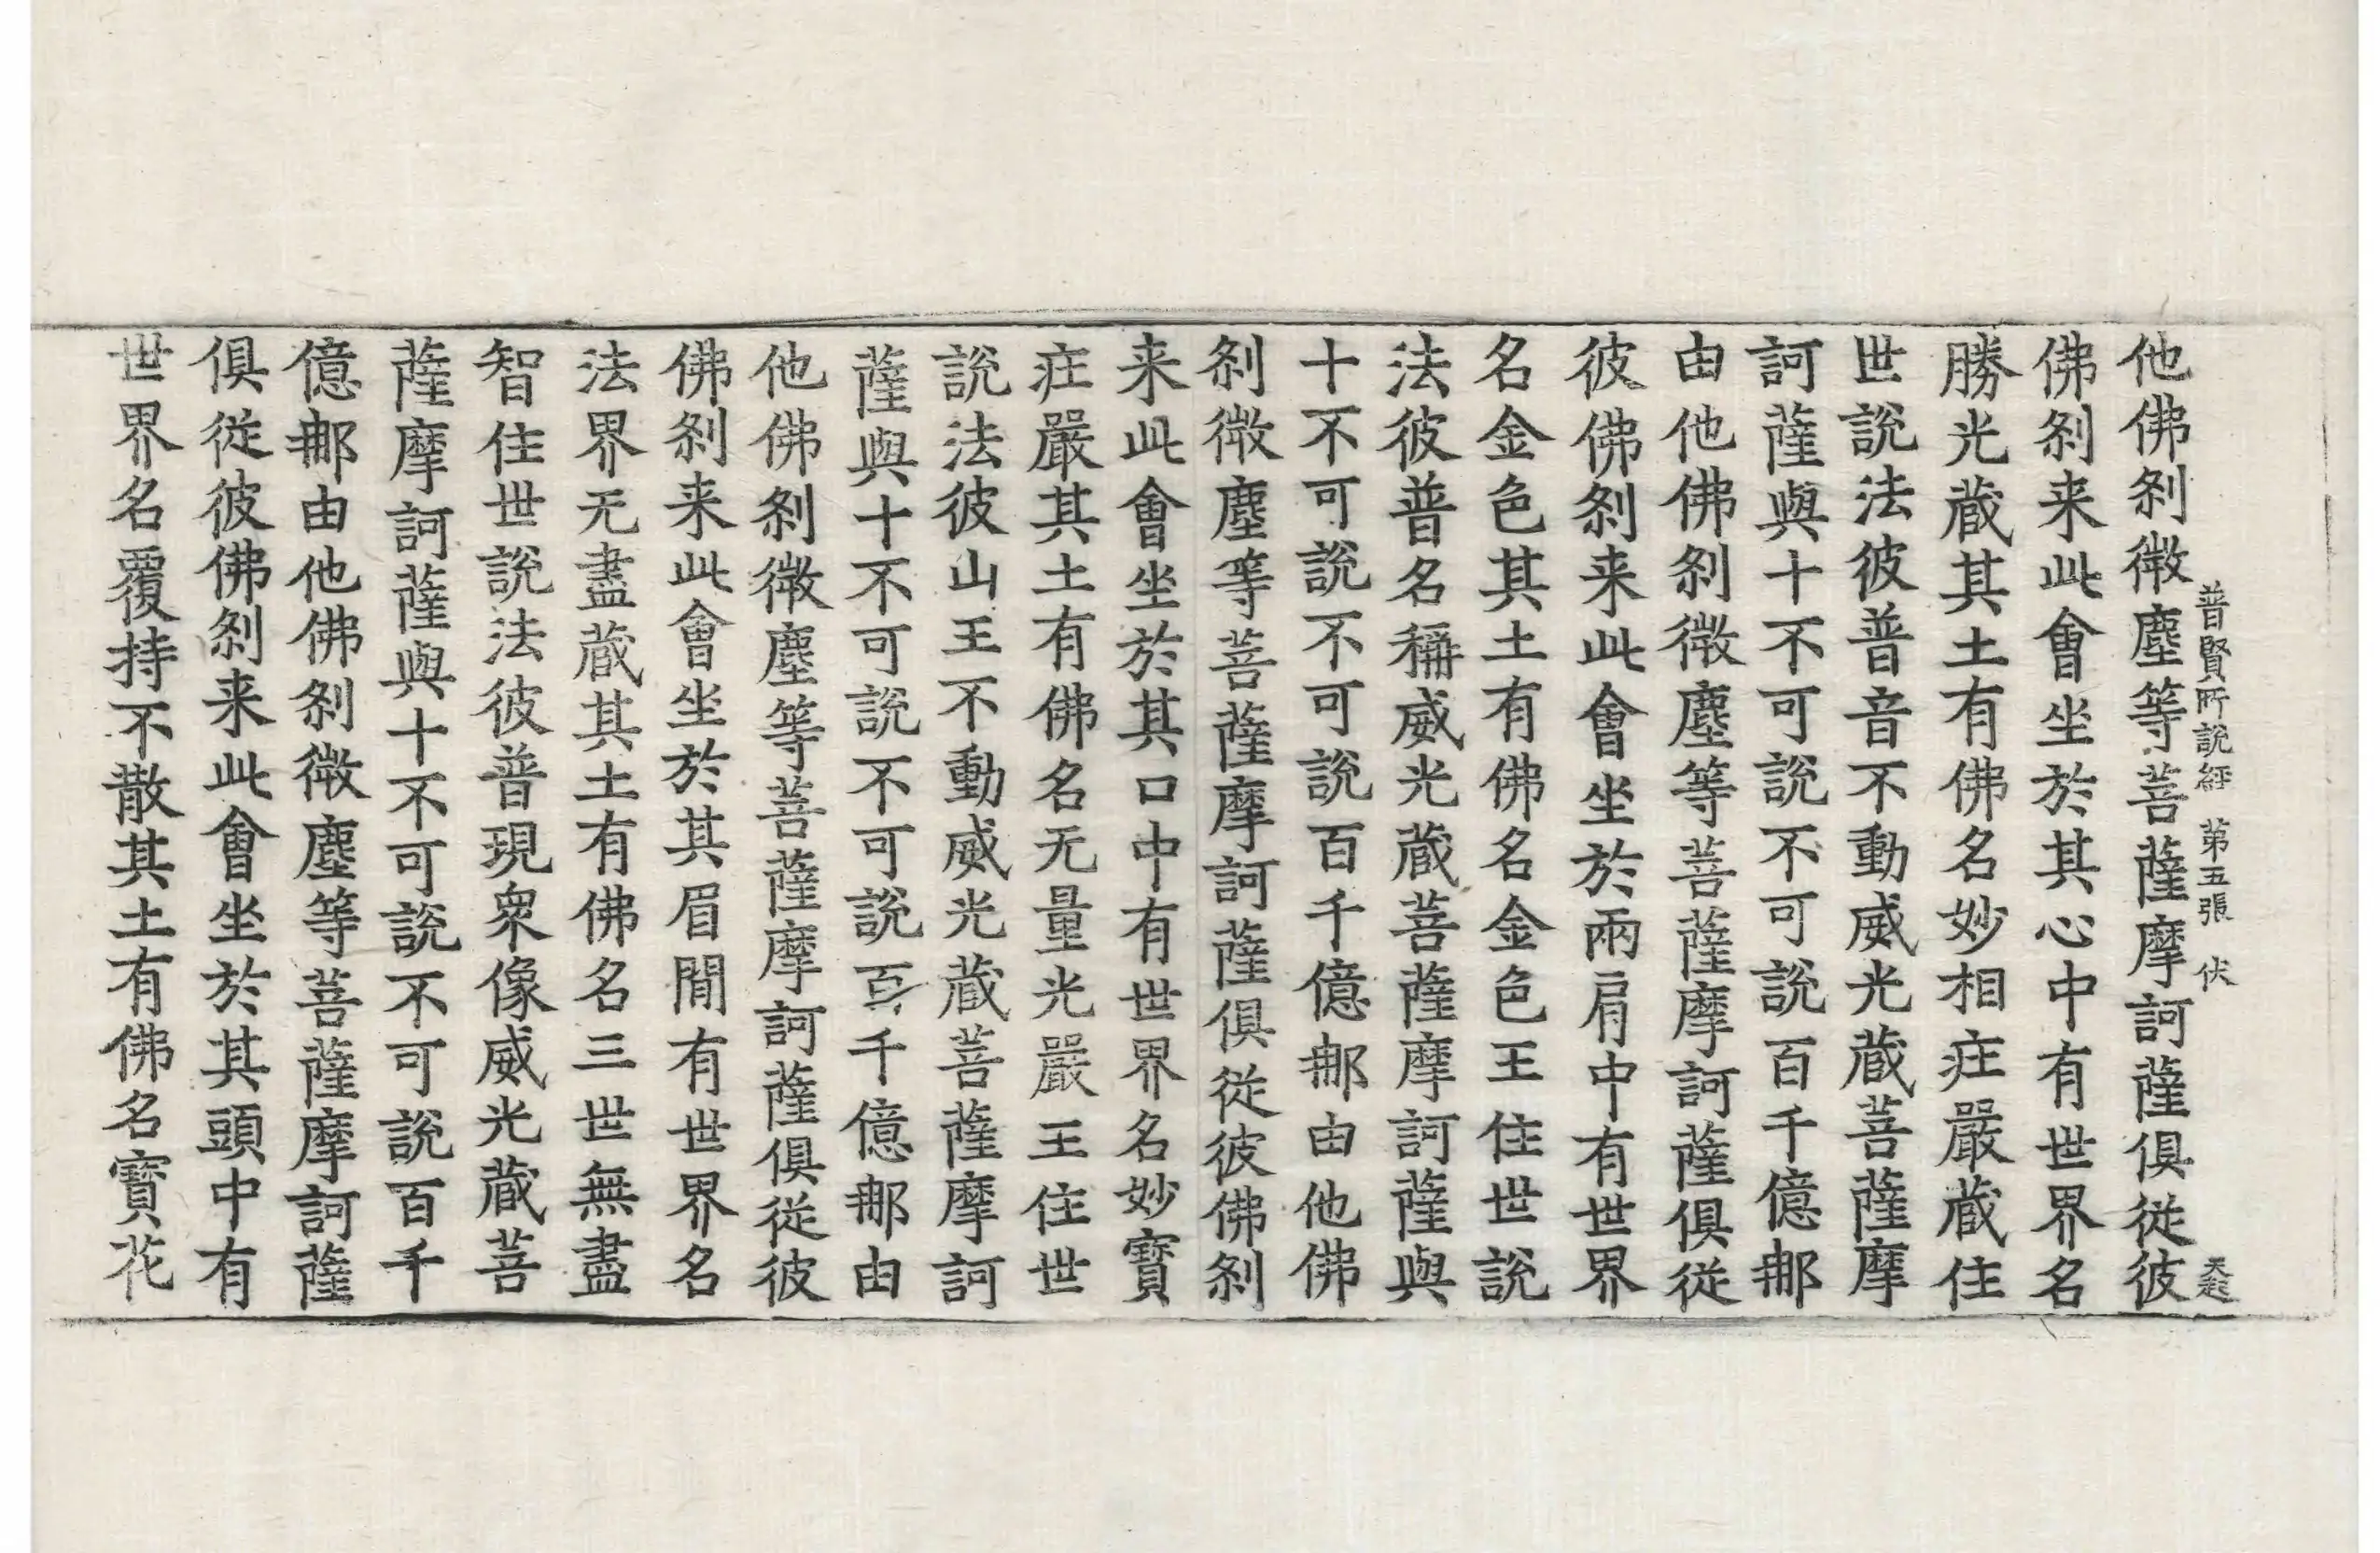 普賢所說経 第五張 伏
他佛剎微塵等菩薩摩訶薩俱従彼
佛剎来此會坐於其心中有世界名
勝光蔵其土有佛名妙相疘嚴蔵住
世說法彼普音不動威光蔵菩薩摩
訶薩與十不可說不可說百千億那
由他佛剎微塵等菩薩摩訶薩俱従
彼佛剎来此會坐於兩肩中有世界
名金色其土有佛名金色王住世說
法彼普名稱威光蔵菩薩摩訶薩與
十不可說不可說百千億那由他佛
剎微塵等菩薩摩訶薩俱従彼佛剎
来此會坐於其口中有世界名妙寶
疘嚴其土有佛名无量光嚴王住世
說法彼山王不動威光蔵菩薩摩訶
薩與十不可說不可說百千億那由
他佛剎微塵等菩薩摩訶薩俱従彼
佛剎来此會坐於其眉間有世界名
法界无盡蔵其土有佛名三世無盡
智住世說法彼普現衆像威光蔵菩
薩摩訶薩與十不可說不可說百千
億那由他佛剎微塵等菩薩摩訶薩
俱従彼佛剎来此會坐於其頭中有
世界名覆持不散其土有佛名寶花